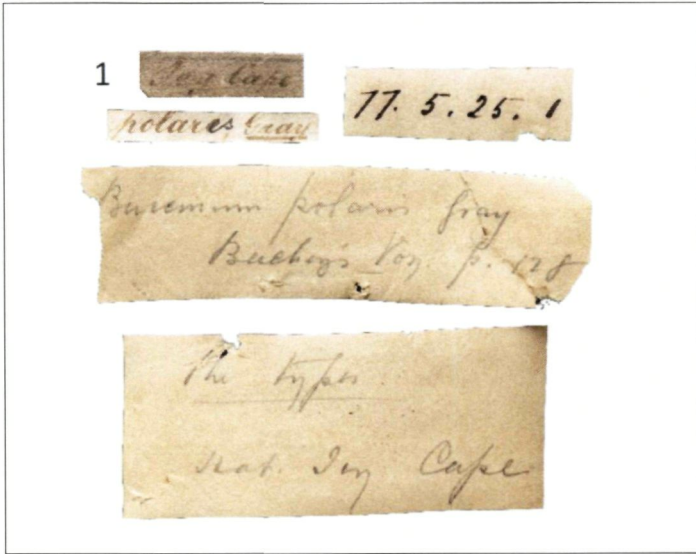 1
Icy Cape
polaris, Gray
77. 5. 25. 1
Buccinum polaris Gray
Beechey's Voy. p. 128
The types
Hab. Icy Cape